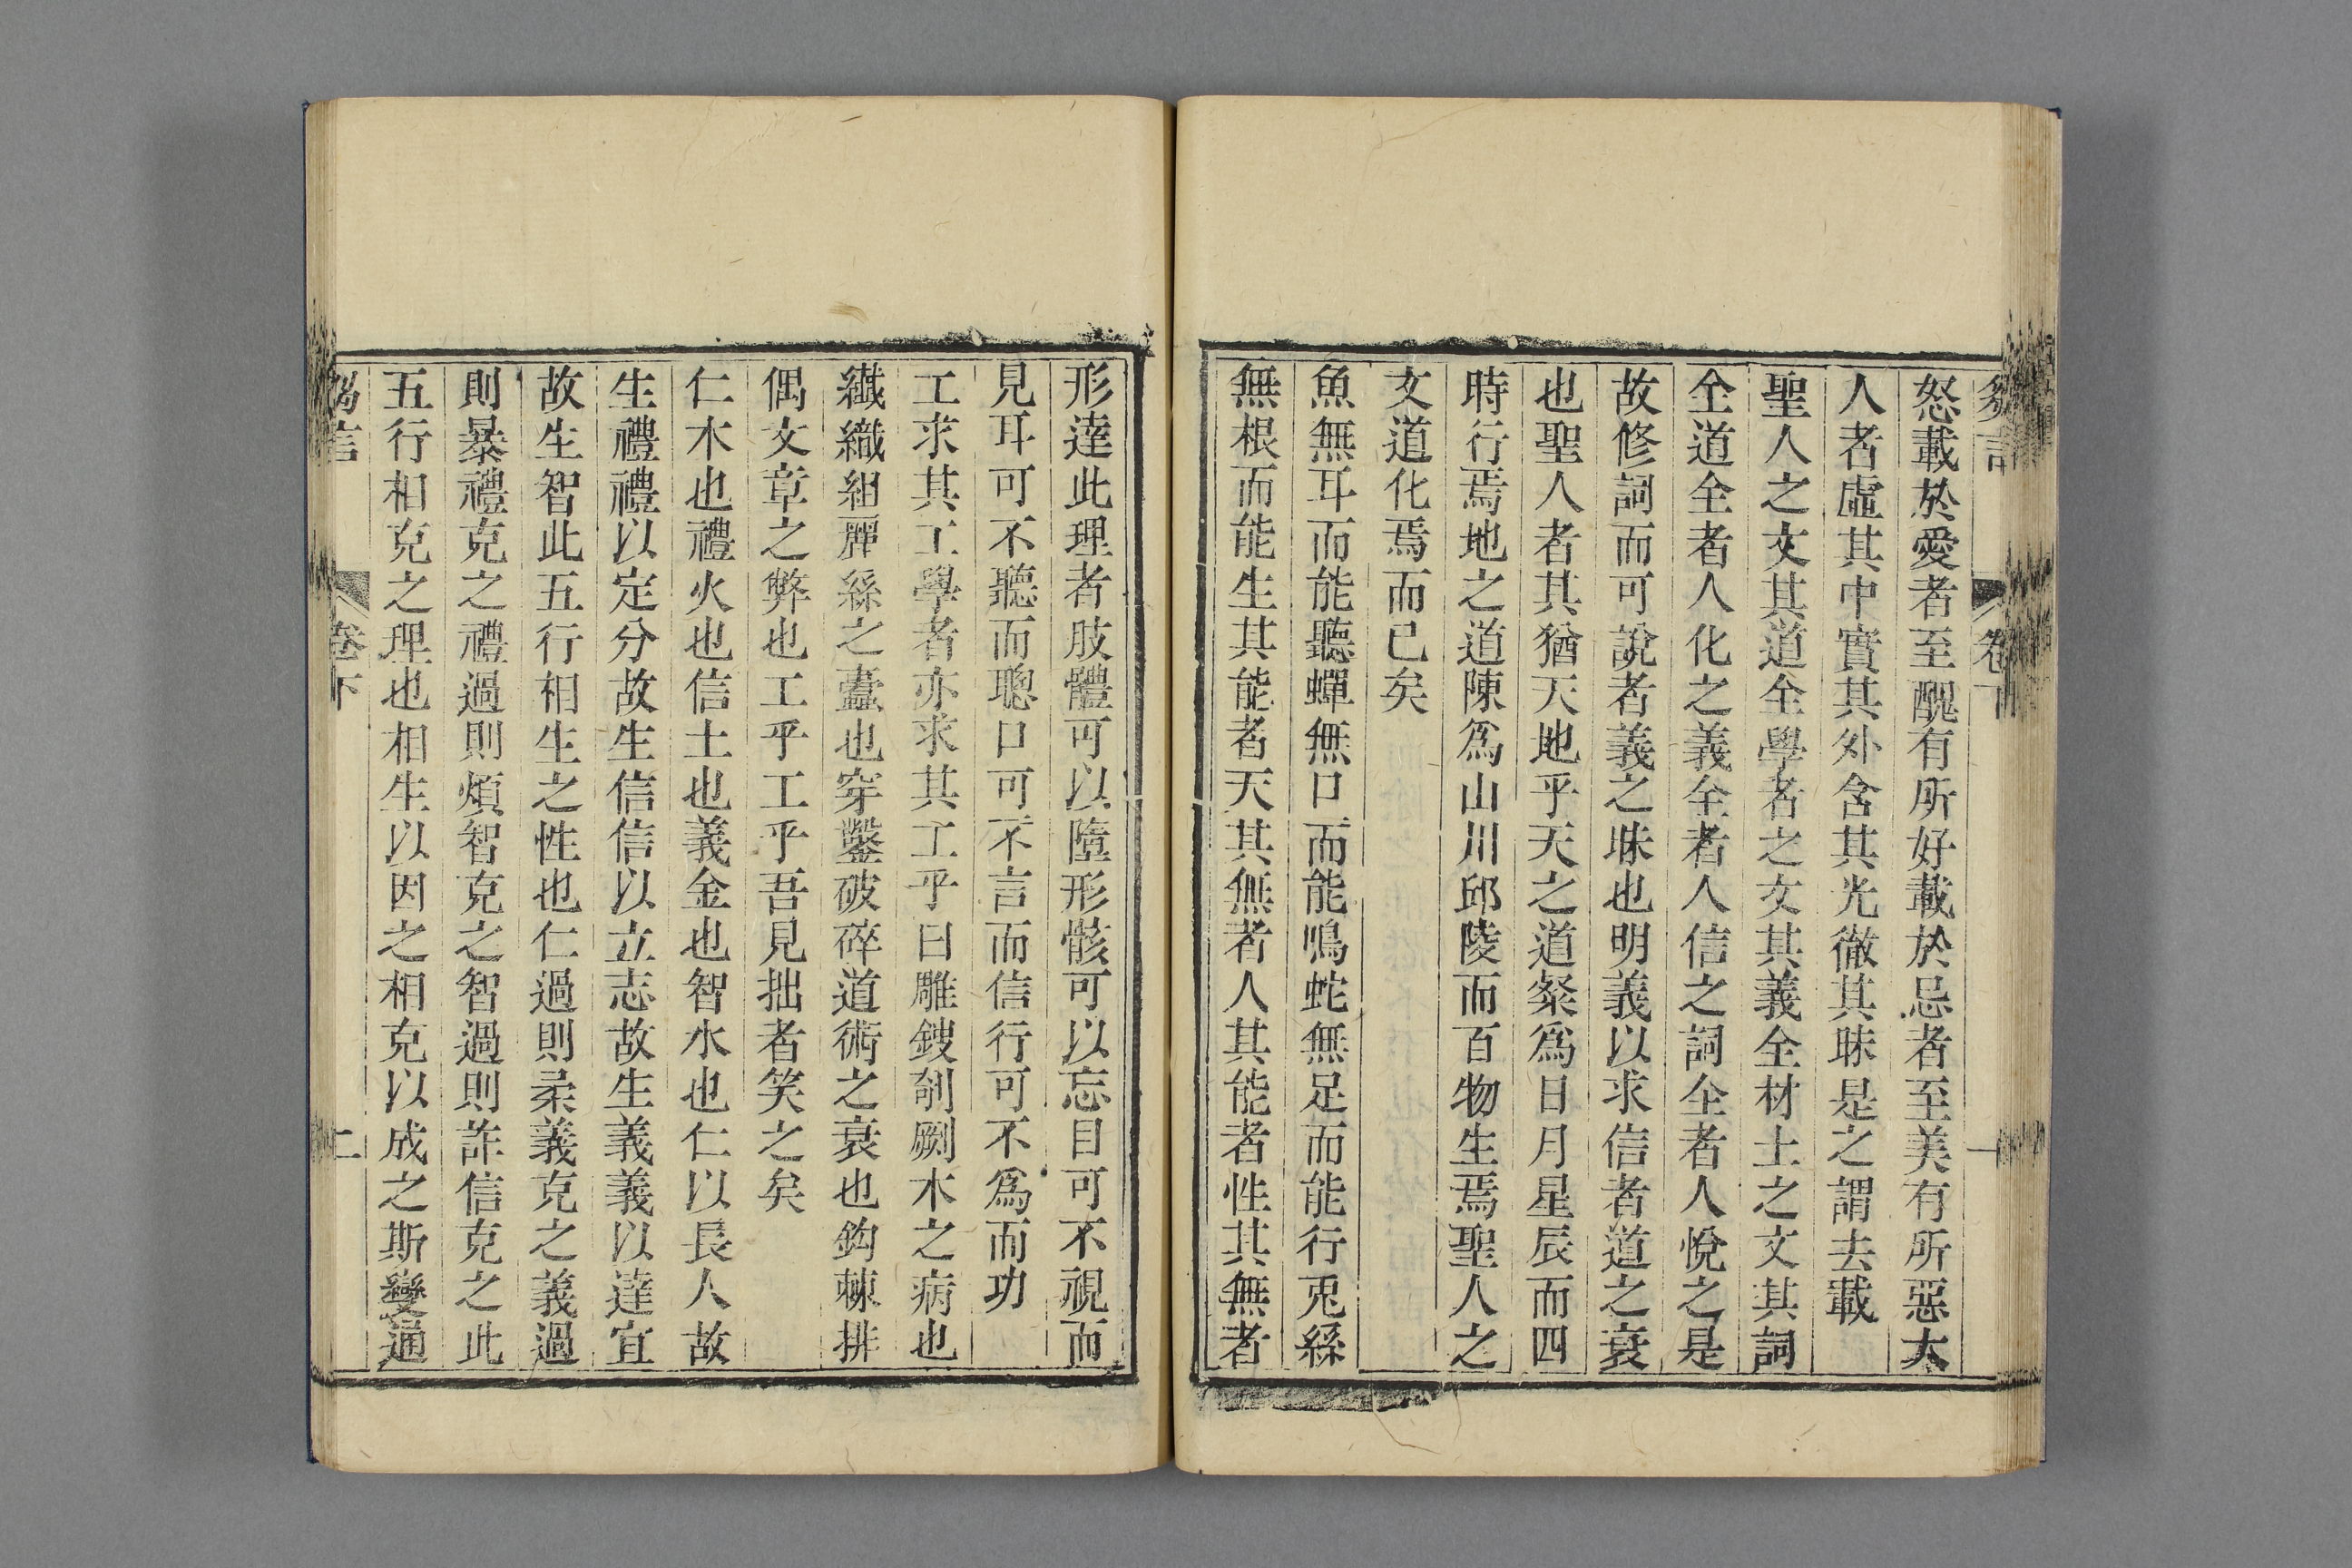 卷下
一
怒載於愛者至醜有所好載於忌者至美有所惡大
人者虛其中實其外含其光徹其昧是之謂去載
聖人之文其道全學者之文其義全材士之文其詞
全道全者人化之義全者人信之詞全者人悅之是
故修詞而可說者義之昧也明義以求信者道之衰
也聖人者其猶天地乎天之道粲為日月星辰而四
時行焉地之道陳為山川邱陵而百物生焉聖人之
文道化焉而已矣
魚無耳而能聽蟬無口而能鳴蛇無足而能行兎絲
無根而能生其能者天其無者人其能者性其無者
形達此理者肢體可以墮形骸可以忘目可不視而
見耳可不聽而聰口可不言而信行可不為而功
工求其工學者亦求其工乎曰雕鎪剞劂木之病也
纖織組繟絲之蠧也穿鑿破碎道術之衰也鈎棘排
偶文章之弊也工乎工乎吾見拙者笑之矣
仁木也禮火也信土也義金也智水也仁以長人故
生禮禮以定分故生信信以立志故生義義以達宜
故生智此五行相生之性也仁過則柔義克之義過
則暴禮克之禮過則煩智克之智過則詐信克之此
五行相克之理也相生以因之相克以成之斯變通
卷下
二